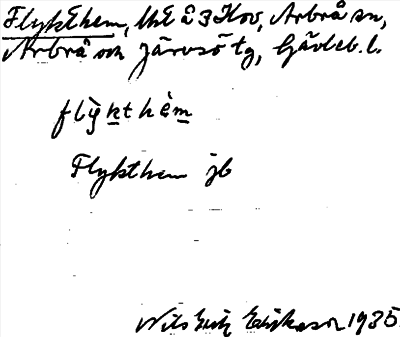 Flykthem, lht å 3 Hov, Arbrå sn,
Arbrå och Järvsö tg, Gävleb. l.
fly̆kthèm
Flykthem jb
Nils Erik Eriksson 1935